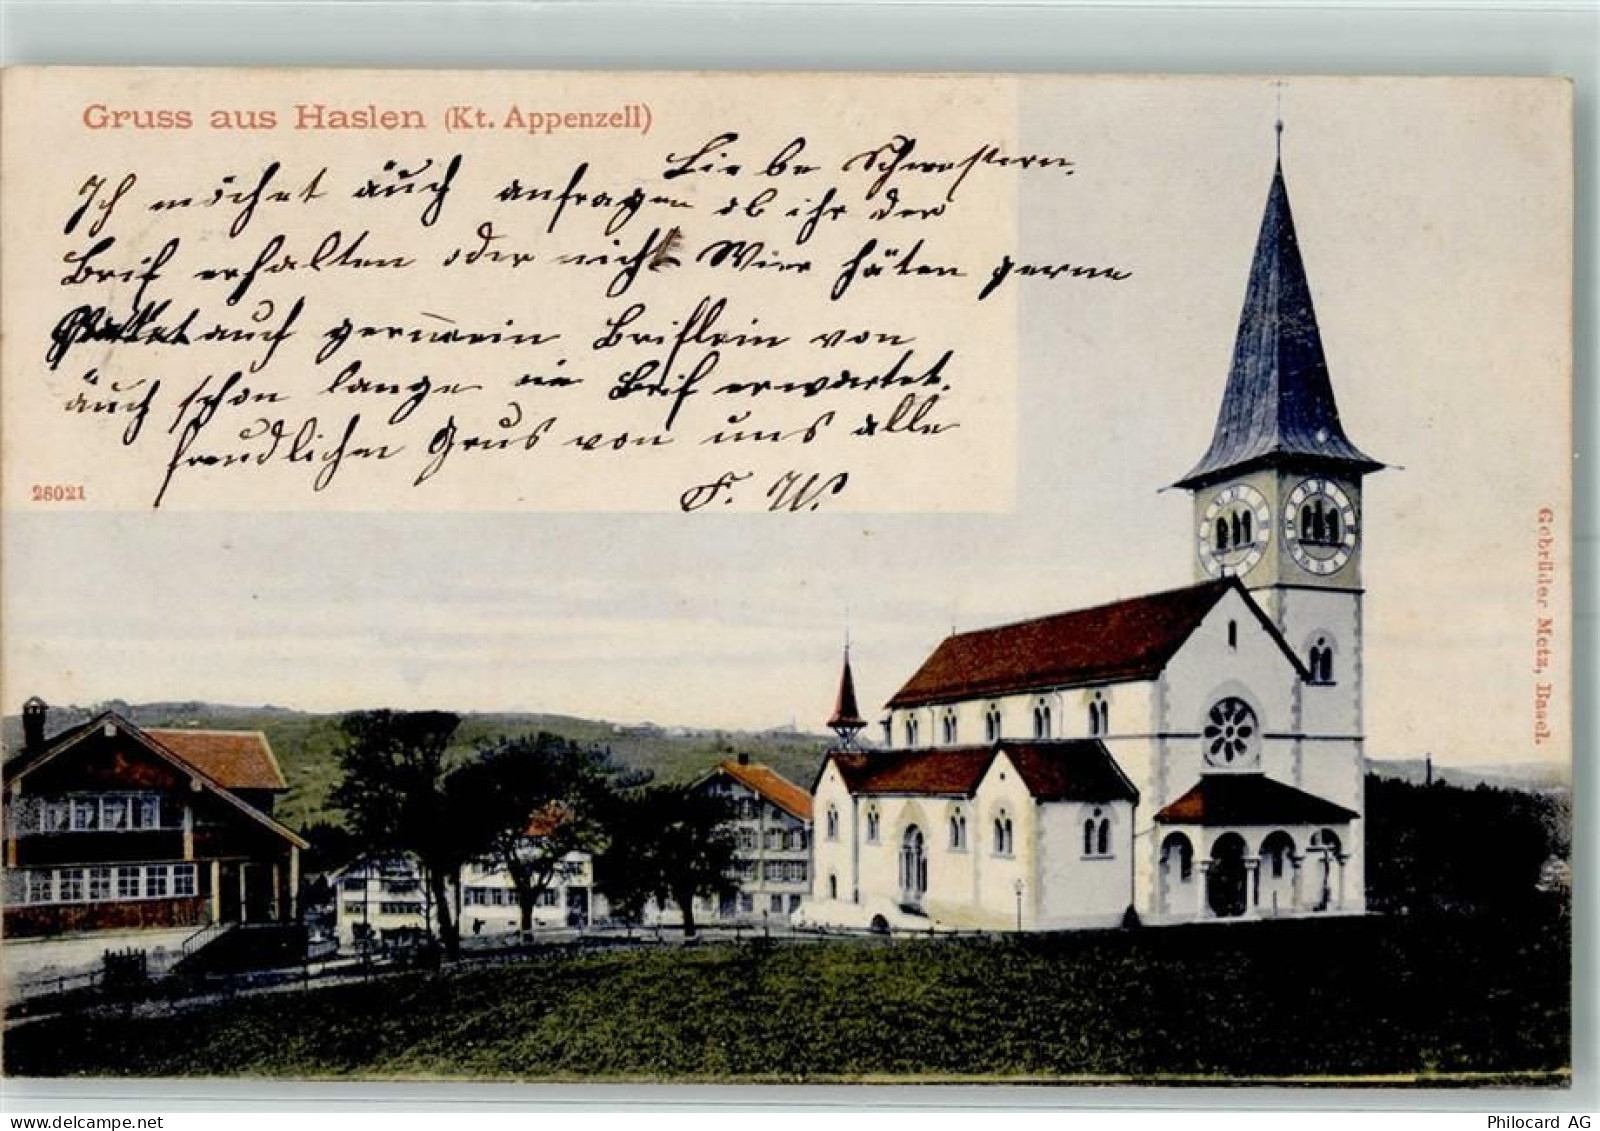 Gruss aus Haslen (Kt. Appenzell)
Liebe Schwestern.
Ich möchet äuch anfragen ob ihr der
Brif erhalten oder nicht Wier häten gerne
auch gern ein Briflein von
äuch schon lange ein Brif erwartet.
freudlichen Grus von uns alle
F. W.
26021
Gebrüder Metz, Basel.
Philocard AG